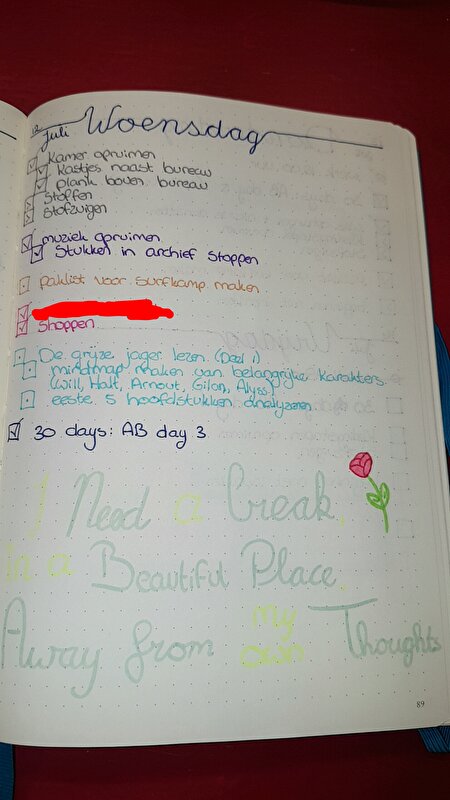 12 juli Woensdag
Kamer opruimen
kastjes naast bureau
plank boven bureau
Stoffen
Stofzuigen
muziek opruimen
Stukken in archief stoppen
paklijst voor surfkamp maken
Shoppen
De grijze jager lezen (Deel 1)
mindmap maken van belangrijke karakters
(Will, Halt, Arnout, Gilan, Alyss)
eeste 5 hoofdstukken analyzeren
30 days: AB day 3
I Need a Break,
in a Beautiful Place,
Away from my own Thoughts
89